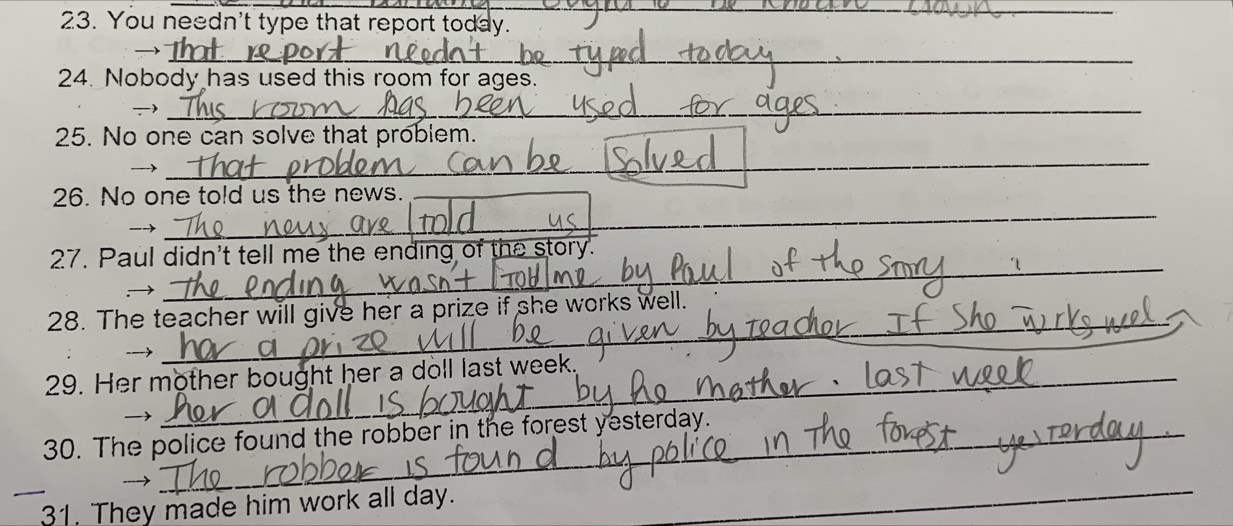 ought to be known down.
23. You needn't type that report today.
→ That report needn't be typed today.
24. Nobody has used this room for ages.
→ This room has been used for ages.
25. No one can solve that problem.
→ that problem can be solved
26. No one told us the news.
→ The news are told us
27. Paul didn't tell me the ending of the story.
→ the ending wasn't told me by Paul of the story.
28. The teacher will give her a prize if she works well.
→ her a prize will be given by teacher If she works well
29. Her mother bought her a doll last week.
→ her a doll is bought by he mother. last week
30. The police found the robber in the forest yesterday.
→ The robber is found by police in the forest yesterday.
31. They made him work all day.